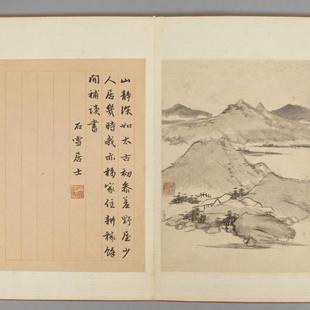 山靜深如太古初參差野屋少
人居幾時我亦移家住耕稼餘
閒補讀書
石雪居士